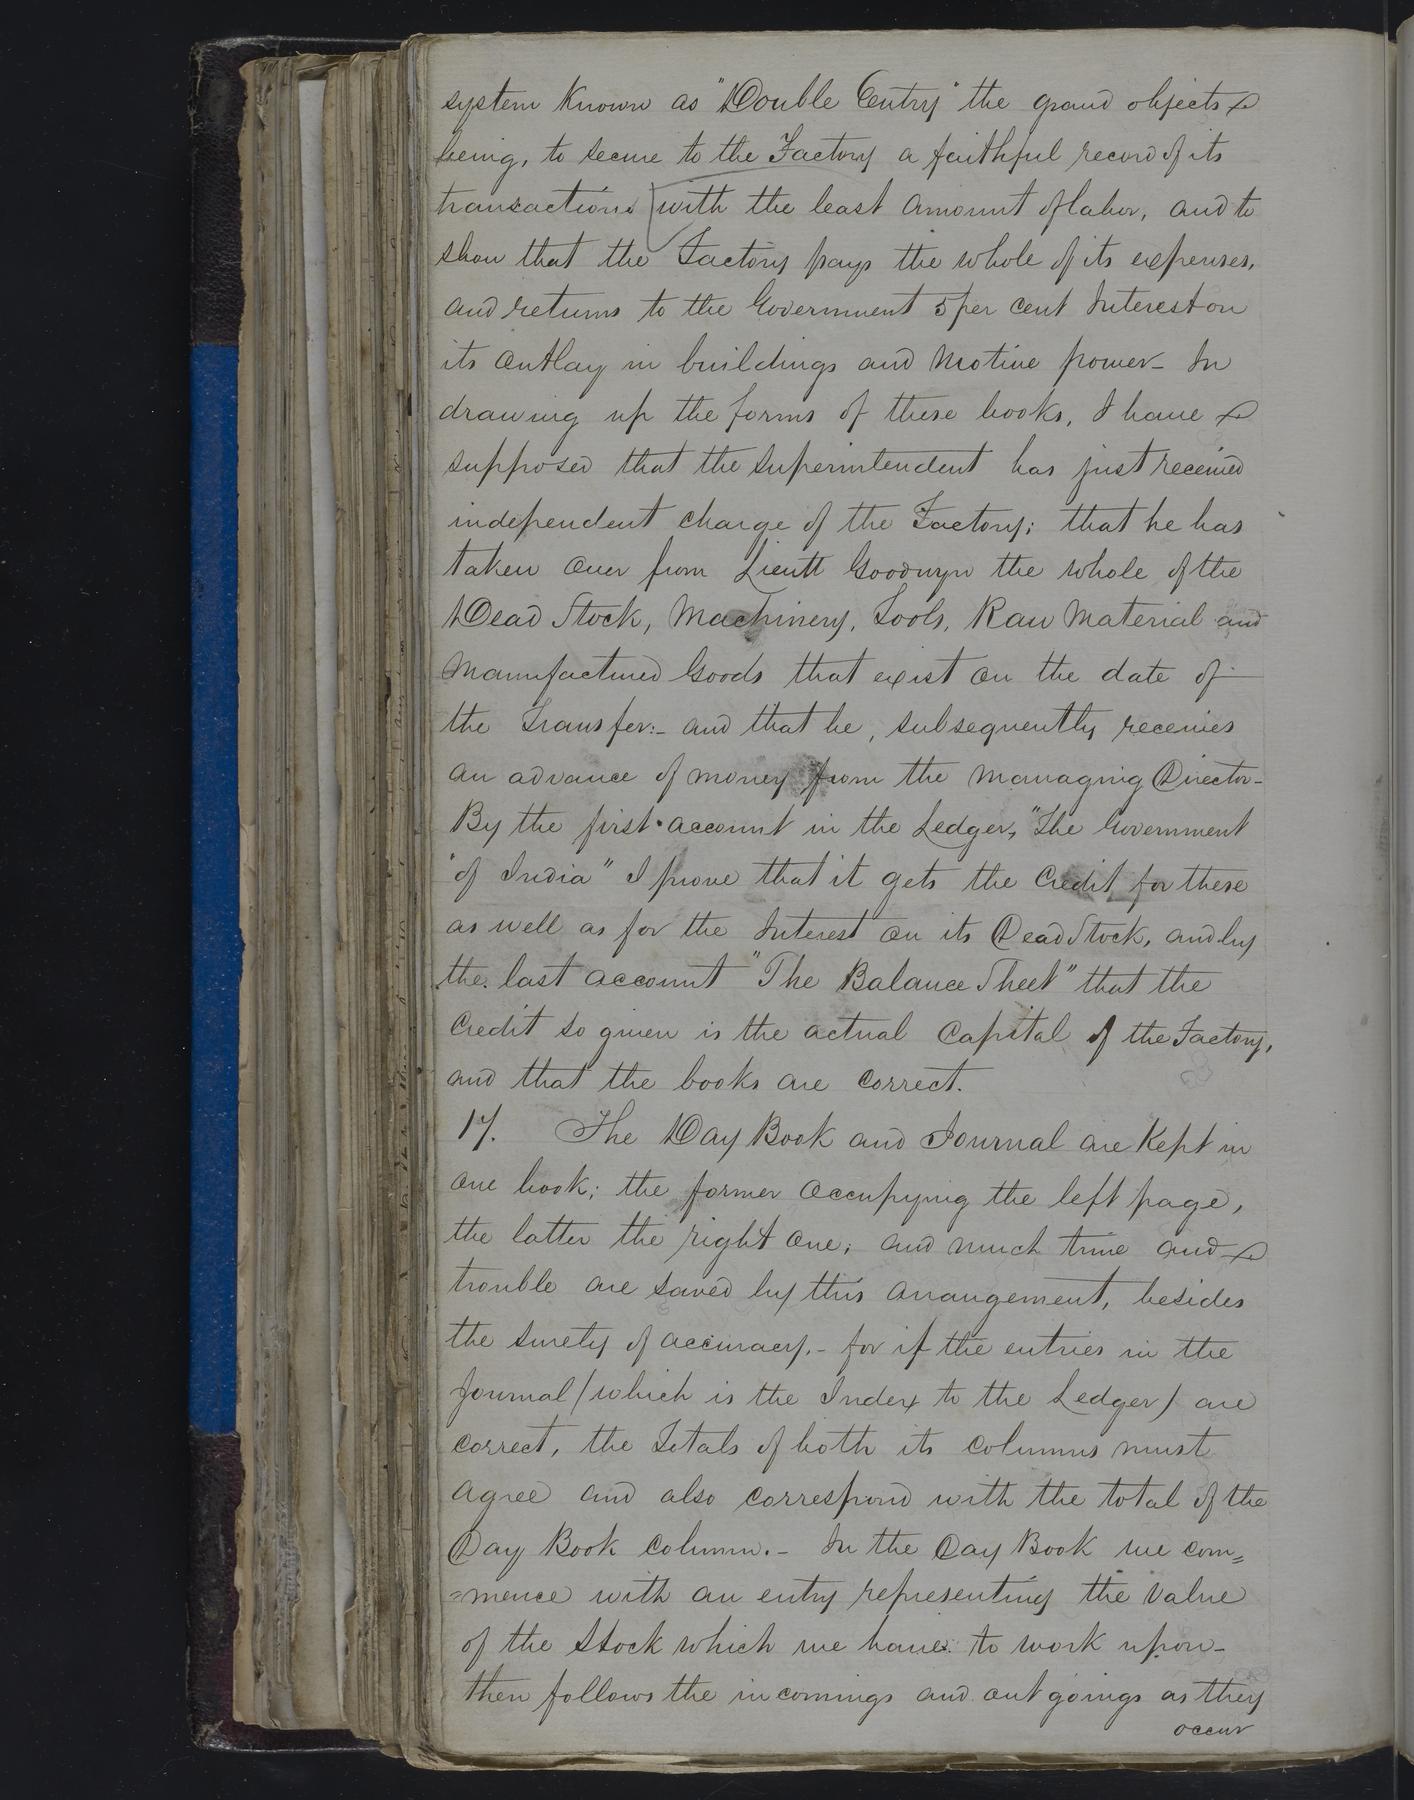 system known as "Double Entry" the grand objects
being, to secure to the Factory a faithful record of its
transactions with the least amount of labor, and to
show that the Factory pays the whole of its expenses,
and returns to the Government 5 per cent Interest on
its outlay in buildings and motive power - In
drawing up the forms of these books, I have
supposed that the Superintendent has just received
independent charge of the Factory; that he has
taken over from Lieutt Goodwyn the whole of the
Dead Stock, Machinery, Tools, Raw Material and
Manufactured Goods that exist on the date of
the Transfer:- and that he, subsequently receives
an advance of money from the Managing Director-
By the first account in the Ledger, "The Government
"of India" I prove that it gets the Credit for these
as well as for the Interest on its Dead Stock, and by
the last account "The Balance Sheet" that the
Credit so given is the actual Capital of the Factory,
and that the books are correct.
17. The Day Book and Journal are Kept in
one book; the former occupying the left page,
the latter the right one; and much time and
trouble are saved by this arrangement, besides
the surety of accuracy.- for if the entries in the
Journal (which is the Index to the Ledger) are
correct, the Totals of both its columns must
agree and also correspond with the total of the
Day Book column.- In the Day Book we com=
=mence with an entry representing the value
of the Stock which we have to work upon-
then follows the incomings and outgoings as they
occur